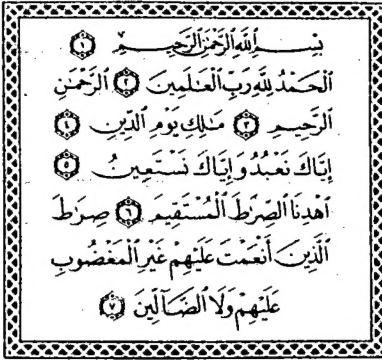 بِسۡمِ ٱللَّهِ ٱلرَّحۡمَٰنِ ٱلرَّحِيمِ ١
ٱلۡحَمۡدُ لِلَّهِ رَبِّ ٱلۡعَٰلَمِينَ ٢ ٱلرَّحۡمَٰنِ
ٱلرَّحِيمِ ٣ مَٰلِكِ يَوۡمِ ٱلدِّينِ ٤
إِيَّاكَ نَعۡبُدُ وَإِيَّاكَ نَسۡتَعِينُ ٥
ٱهۡدِنَا ٱلصِّرَٰطَ ٱلۡمُسۡتَقِيمَ ٦ صِرَٰطَ
ٱلَّذِينَ أَنۡعَمۡتَ عَلَيۡهِمۡ غَيۡرِ ٱلۡمَغۡضُوبِ
عَلَيۡهِمۡ وَلَا ٱلضَّآلِّينَ ٧